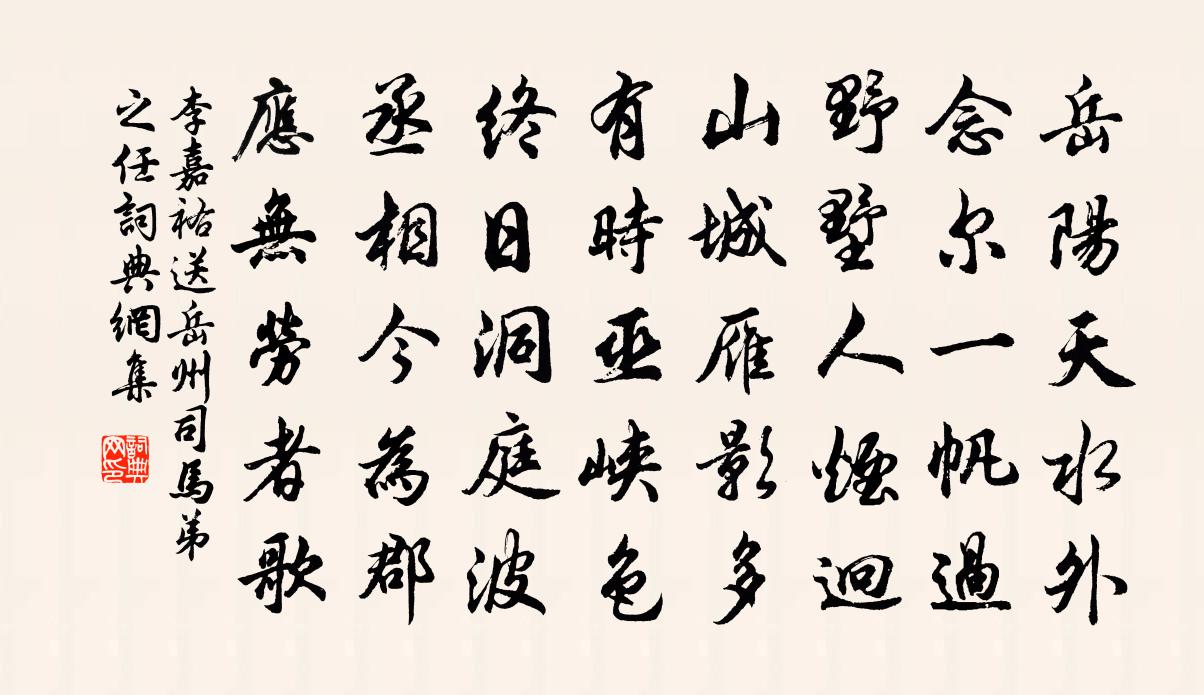 岳陽天水外
念尔一帆過
野墅人煙迥
山城雁影多
有時巫峽色
終日洞庭波
丞相今為郡
應無勞者歌
李嘉祐送岳州司馬弟
之任詞典網集
詞典网印